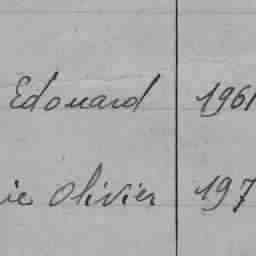 Edouard 1961
ie Olivier 197